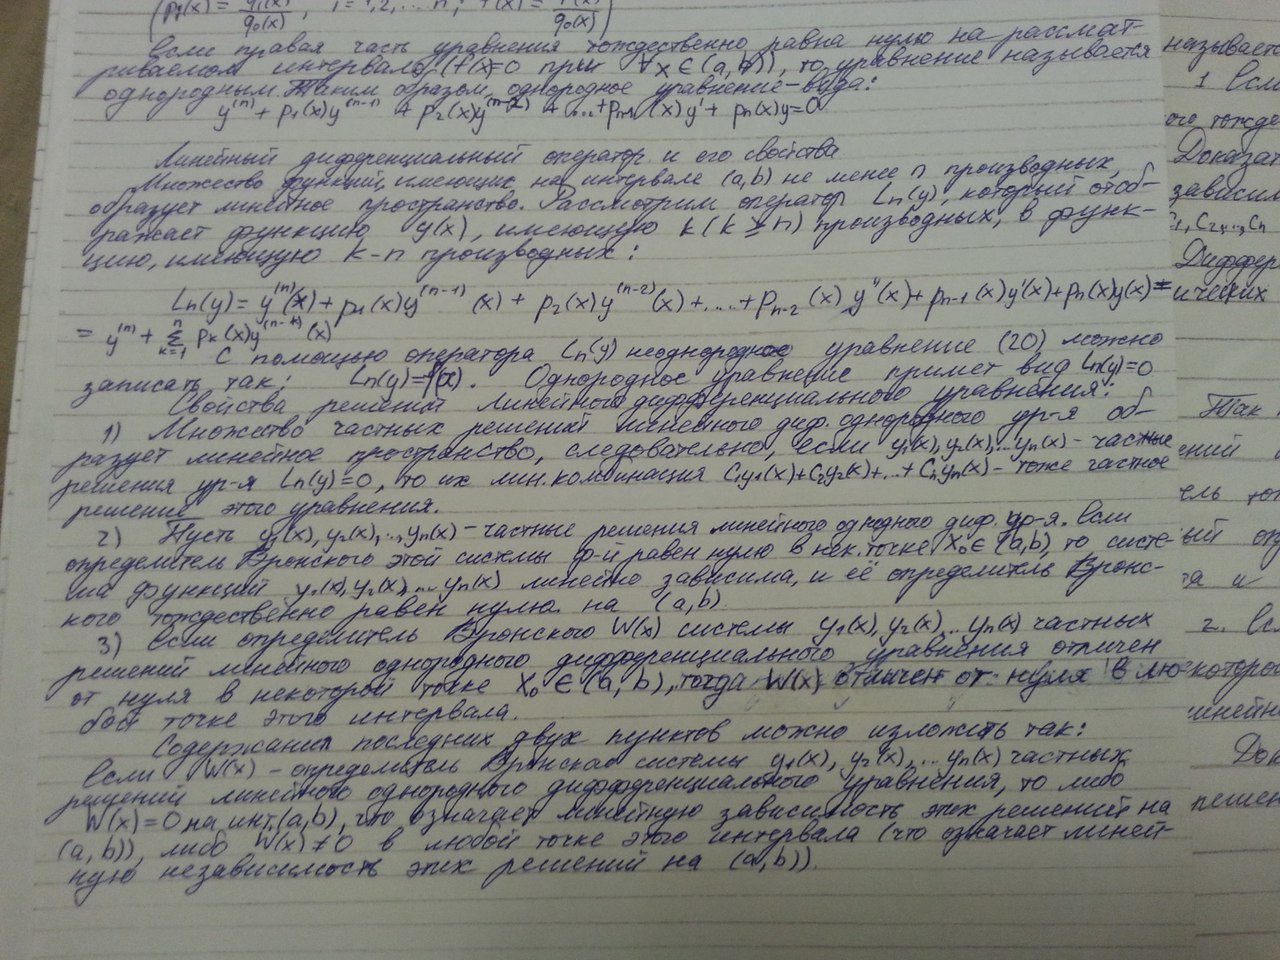 (p₁(x) = q₁(x)/q₀(x), i = 1,2,... n;
Если правая часть уравнения тождественно равна нулю на рассмат-
риваемом интервале (f(x)=0 при ∀x∈(a,b)), то уравнение называется
однородным. Таким образом, однородное уравнение вида:
y⁽ⁿ⁾ + p₁(x)y⁽ⁿ⁻¹⁾ + p₂(x)y⁽ⁿ⁻²⁾ + ... + pₙ₋₁(x)y' + pₙ(x)y=0
Линейный дифференциальный оператор и его свойства
Множество функций, имеющих на интервале (a,b) не менее n производных,
образует линейное пространство. Рассмотрим оператор Ln(y), который отоб-
ражает функцию y(x), имеющую k (k ≥ n) производных, в функ-
цию, имеющую k-n производных:
Ln(y) = y⁽ⁿ⁾(x) + p₁(x)y⁽ⁿ⁻¹⁾(x) + p₂(x)y⁽ⁿ⁻²⁾(x) + ... + pₙ₋₂(x)y''(x) + pₙ₋₁(x)y'(x) + pₙ(x)y(x) =
= y⁽ⁿ⁾ + Σₖ₌₁ⁿ pₖ(x)y⁽ⁿ⁻ᵏ⁾(x)
С помощью оператора Ln(y) неоднородное уравнение (20) можно
записать так: Ln(y)=f(x). Однородное уравнение примет вид Ln(y)=0
Свойства решений линейного дифференциального уравнения:
1) Множество частных решений линейного диф. однородного ур-я об-
разует линейное пространство, следовательно, если y₁(x), y₂(x), ... yₙ(x) - частные
решения ур-я Ln(y)=0, то их лин. комбинация C₁y₁(x)+C₂y₂(x)+...+Cₙyₙ(x) - тоже частное
решение этого уравнения.
2) Пусть y₁(x), y₂(x), ..., yₙ(x) - частные решения линейного одндного диф. ур-я. Если
определитель Вронского этой системы ф-й равен нулю в нек. точке X₀∈(a,b), то систе-
ма функций y₁(x), y₂(x), ... yₙ(x) линейно зависима, и её определитель Вронс-
кого тождественно равен нулю на (a,b).
3) Если определитель Вронского W(x) системы y₁(x), y₂(x), ... yₙ(x) частных
решений линейного однородного дифференциального уравнения отличен
от нуля в некоторой точке X₀∈(a,b), тогда W(x) отличен от нуля в лю-
бой точке этого интервала.
Содержания последних двух пунктов можно изложить так:
Если W(x) - определитель Вронского системы y₁(x), y₂(x), ... yₙ(x) частных
решений линейного однородного дифференциального уравнения, то либо
W(x)=0 на инт. (a,b), что означает линейную зависимость этих решений на
(a,b)), либо W(x)≠0 в любой точке этого интервала (что означает линей-
ную независимость этих решений на (a,b)).
называетс
1. Если
ого тожде
Доказат
зависим
C₁, C₂, ..., Cn
Диффер
ических
Так
ений
ель
ый
та и
2. Есл
некоторо
линейно
Док
решен